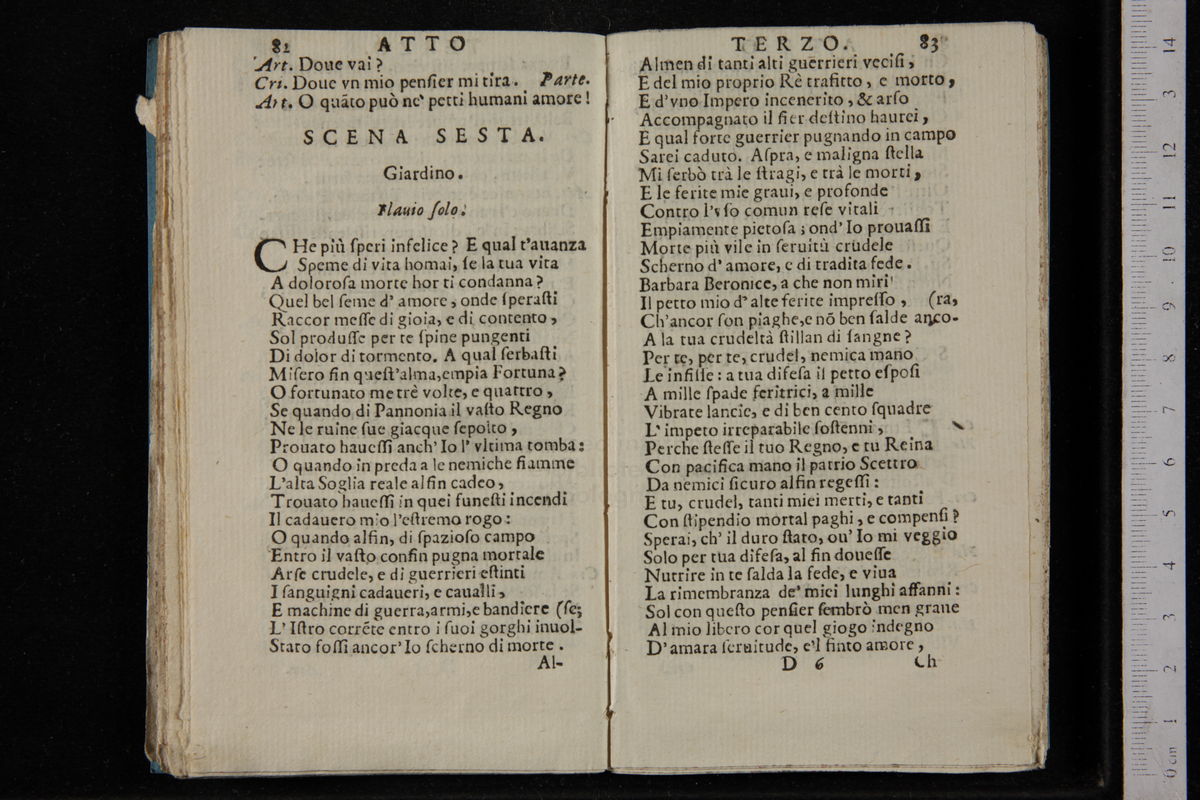 82 ATTO
Art. Doue vai?
Cri. Doue vn mio penſier mi tira. Parte.
Art. O quãto può ne' petti humani amore!
SCENA SESTA.
Giardino.
Flauio ſolo.
CHe più ſperi infelice? E qual t'auanza
Speme di vita homai, ſe la tua vita
A doloroſa morte hor ti condanna?
Quel bel ſeme d' amore, onde ſperaſti
Raccor meſſe di gioia, e di contento,
Sol produſſe per te ſpine pungenti
Di dolor di tormento. A qual ſerbaſti
Miſero fin queſt'alma,empia Fortuna?
O fortunato me trè volte, e quattro,
Se quando di Pannonia il vaſto Regno
Ne le ruine ſue giacque ſepolto,
Prouato haueſſi anch' Io l' vltima tomba:
O quando in preda a le nemiche fiamme
L'alta Soglia reale alfin cadeo,
Trouato haueſſi in quei funeſti incendi
Il cadauero mio l'eſtremo rogo:
O quando alfin, di ſpazioſo campo
Entro il vaſto confin pugna mortale
Arſe crudele, e di guerrieri eſtinti
I ſanguigni cadaueri, e caualli,
E machine di guerra,armi,e bandiere (ſe;
L' Iſtro corrẽte entro i ſuoi gorghi inuol-
Stato foſſi ancor' Io ſcherno di morte.
Al-
TERZO. 83
Almen di tanti alti guerrieri vcciſi,
E del mio proprio Rè trafitto, e morto,
E d'vno Impero incenerito, & arſo
Accompagnato il fier deſtino haurei,
E qual forte guerrier pugnando in campo
Sarei caduto. Aſpra, e maligna ſtella
Mi ſerbò trà le ſtragi, e trà le morti,
E le ferite mie graui, e profonde
Contro l'vſo comun reſe vitali
Empiamente pietoſa; ond' Io prouaſſi
Morte più vile in ſeruitù crudele
Scherno d' amore, e di tradita fede.
Barbara Beronice, a che non miri
Il petto mio d' alte ferite impreſſo, (ra,
Ch'ancor ſon piaghe,e nõ ben ſalde anco-
A la tua crudeltà ſtillan di ſangue?
Per te, per te, crudel, nemica mano
Le infiſſe: a tua difeſa il petto eſpoſi
A mille ſpade feritrici, a mille
Vibrate lancie, e di ben cento ſquadre
L' impeto irreparabile ſoſtenni,
Perche ſteſſe il tuo Regno, e tu Reina
Con pacifica mano il patrio Scettro
Da nemici ſicuro alfin regeſſi:
E tu, crudel, tanti miei merti, e tanti
Con ſtipendio mortal paghi, e compenſi?
Sperai, ch' il duro ſtato, ou' Io mi veggio
Solo per tua difeſa, al fin doueſſe
Nutrire in te ſalda la fede, e viua
La rimembranza de' miei lunghi affanni:
Sol con queſto penſier ſembrò men graue
Al mio libero cor quel giogo indegno
D' amara ſeruitude, e'l finto amore,
D 6 Ch